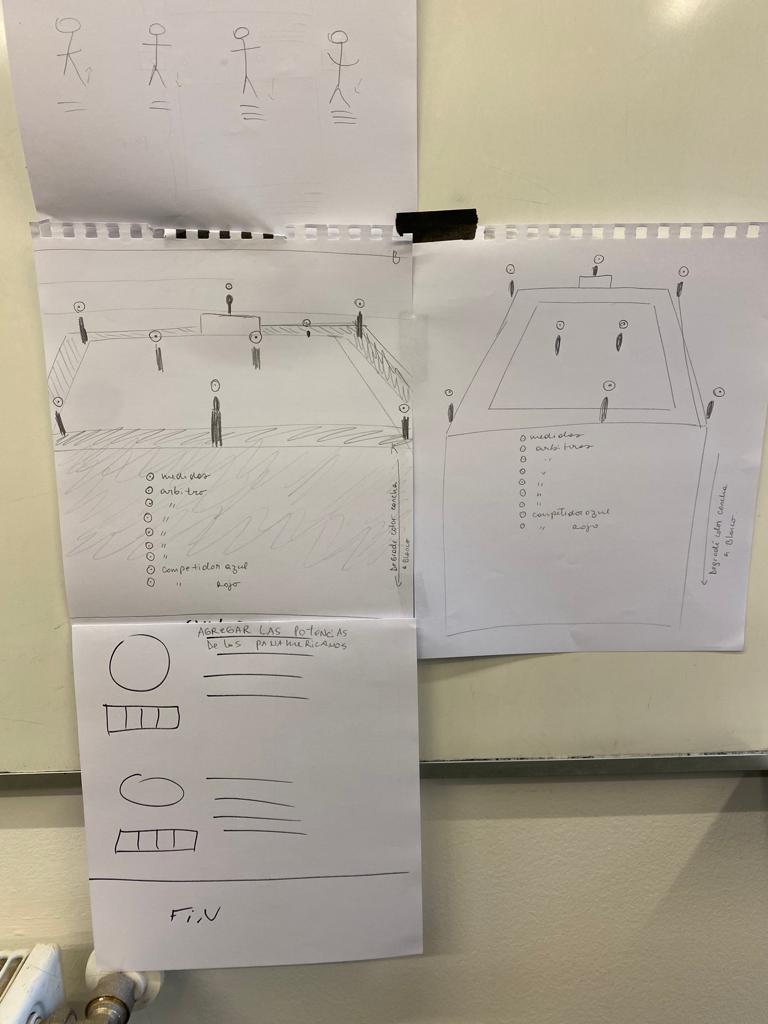 medidas
arbitro
"
"
"
"
"
competidor azul
" rojo
Degradé color cancha
a Blanco
medidas
arbitros
"
"
"
"
"
competidor azul
" rojo
Degradé color cancha
a Blanco
AGREGAR LAS POTENCIAS
De los PANAMERICANOS
FiN